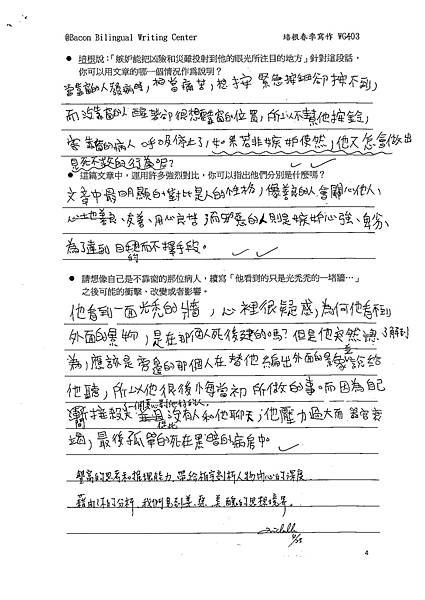 @Bacon Bilingual Writing Center 培根春季寫作 WG403
● 培根說:「嫉妒能把凶險和災難投射到他的眼光所注目的地方」針對這段話,
你可以用文章的哪一個情況作爲說明?
當靠窗的人發病時,相當痛苦,想按緊急按鈕卻按不到,
而沒靠窗的人醒著卻很想靠窗的位置,所以不幫他按鈴,
害靠窗的病人呼吸停止了,如果若非嫉妒使然,他又怎會做出
見死不救的行為呢?
● 這篇文章中,運用許多強烈對比,你可以指出他們分別是什麼嗎?
文章中最明顯的對比是人的性格,善良的人會關心他人、
心地善良、友善、用心良苦,而邪惡的人則是嫉妒心強、卑劣、
為了達到目的而不擇手段。
● 請想像自己是不靠窗的那位病人,續寫「他看到的只是光禿禿的一堵牆…」
之後可能的衝擊、改變或者影響。
他看到一面光禿的牆,心裡很疑惑,為何他看不到
外面的景物,是在那個人死後建的嗎?但是他突然了解到
為,應該是靠窗的那個人在替他編出外面的景色說給
他聽,所以他很後悔當初所做的事。而因為自己
間接殺了一個
沒有人和他聊天,他壓力過大而
過,最後孤單的死在黑暗的病房中。
豐富的思考和推理能力,帶給
藉由你的分析,我們看到善、惡、美、醜的思想境界。
4